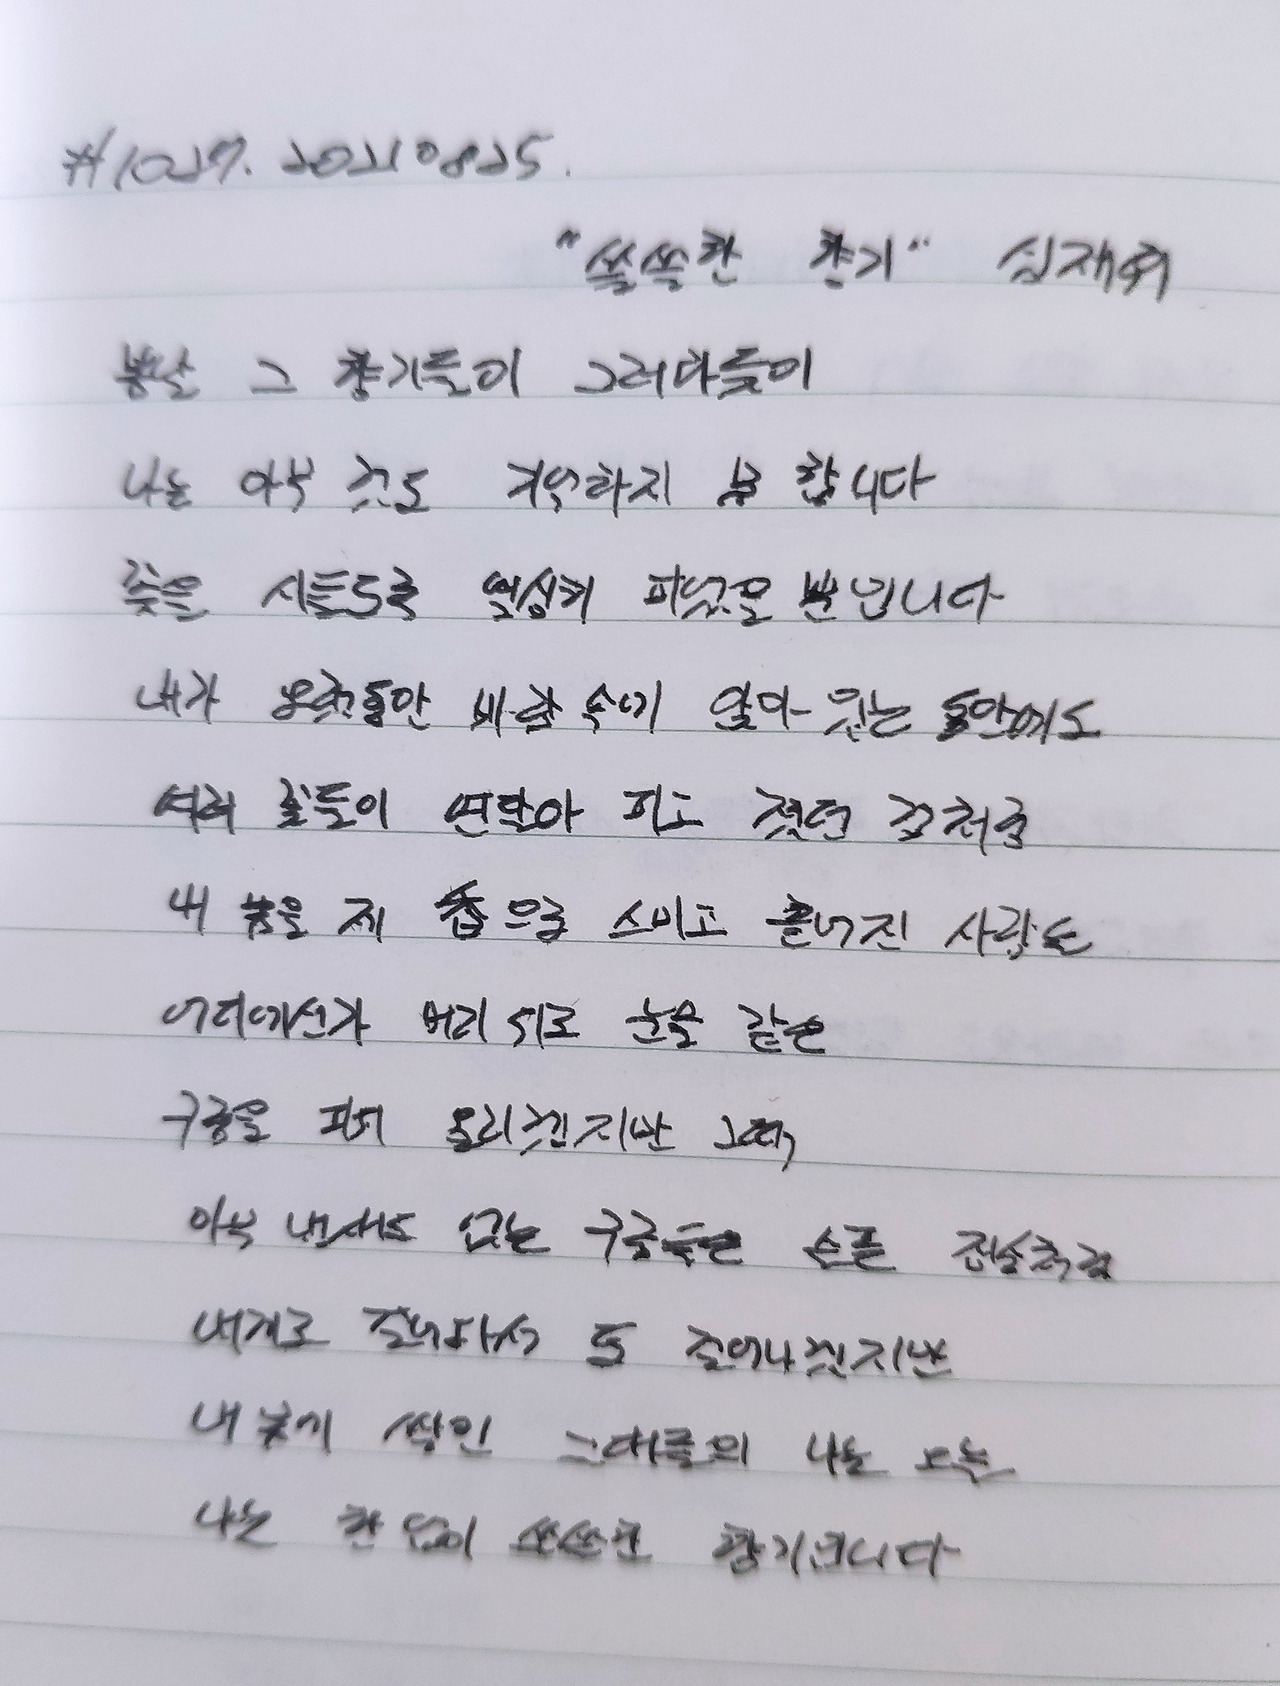 #1027. 20210825.
"쓸쓸한 향기" 심재휘
봄날 그 향기들이 그러다들이
나는 아무 것도 기억하지 못 합니다
꽃은 시들도록 열심히 피었을 뿐입니다
내가 오랫동안 바람 속에 앉아 있는 동안에도
여러 꽃들이 연달아 피고 졌던 것처럼
내 몸을 제 춤으로 스미고 흩어진 사람은
어디에선가 머리 위로 눈물 같은
구름을 피워 올리겠지만 그때
아무 냄새도 없는 구름들은 슬픈 전술처럼
내게로 걸어와서 또 걸어나겠지만
내 몸에 쌓인 그대들의 나는 오늘
나는 한없이 쓸쓸한 향기입니다